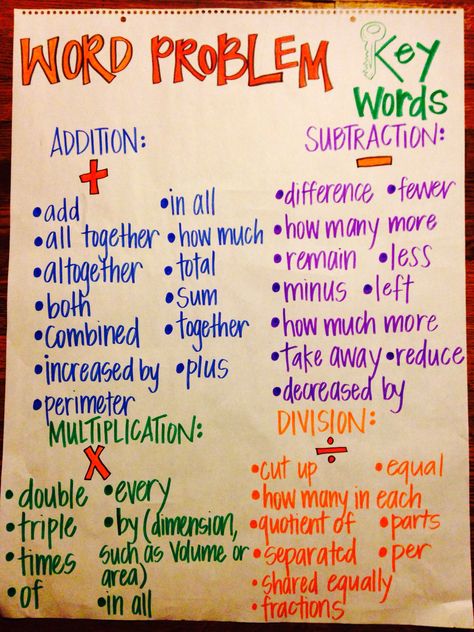 WORD PROBLEM Key
Words
ADDITION:
+
•add
•all together
•altogether
•both
•combined
•increased by
•perimeter
•in all
•how much
•total
•sum
•together
•plus
SUBTRACTION:
−
•difference •fewer
•how many more
•remain •less
•minus •left
•how much more
•take away •reduce
•decreased by
MULTIPLICATION:
x
•double
•triple
•times
•of
•every
•by (dimension,
such as volume or
area)
•in all
DIVISION:
÷
•cut up •equal
•how many in each
•quotient of •parts
•separated •per
•shared equally
•fractions